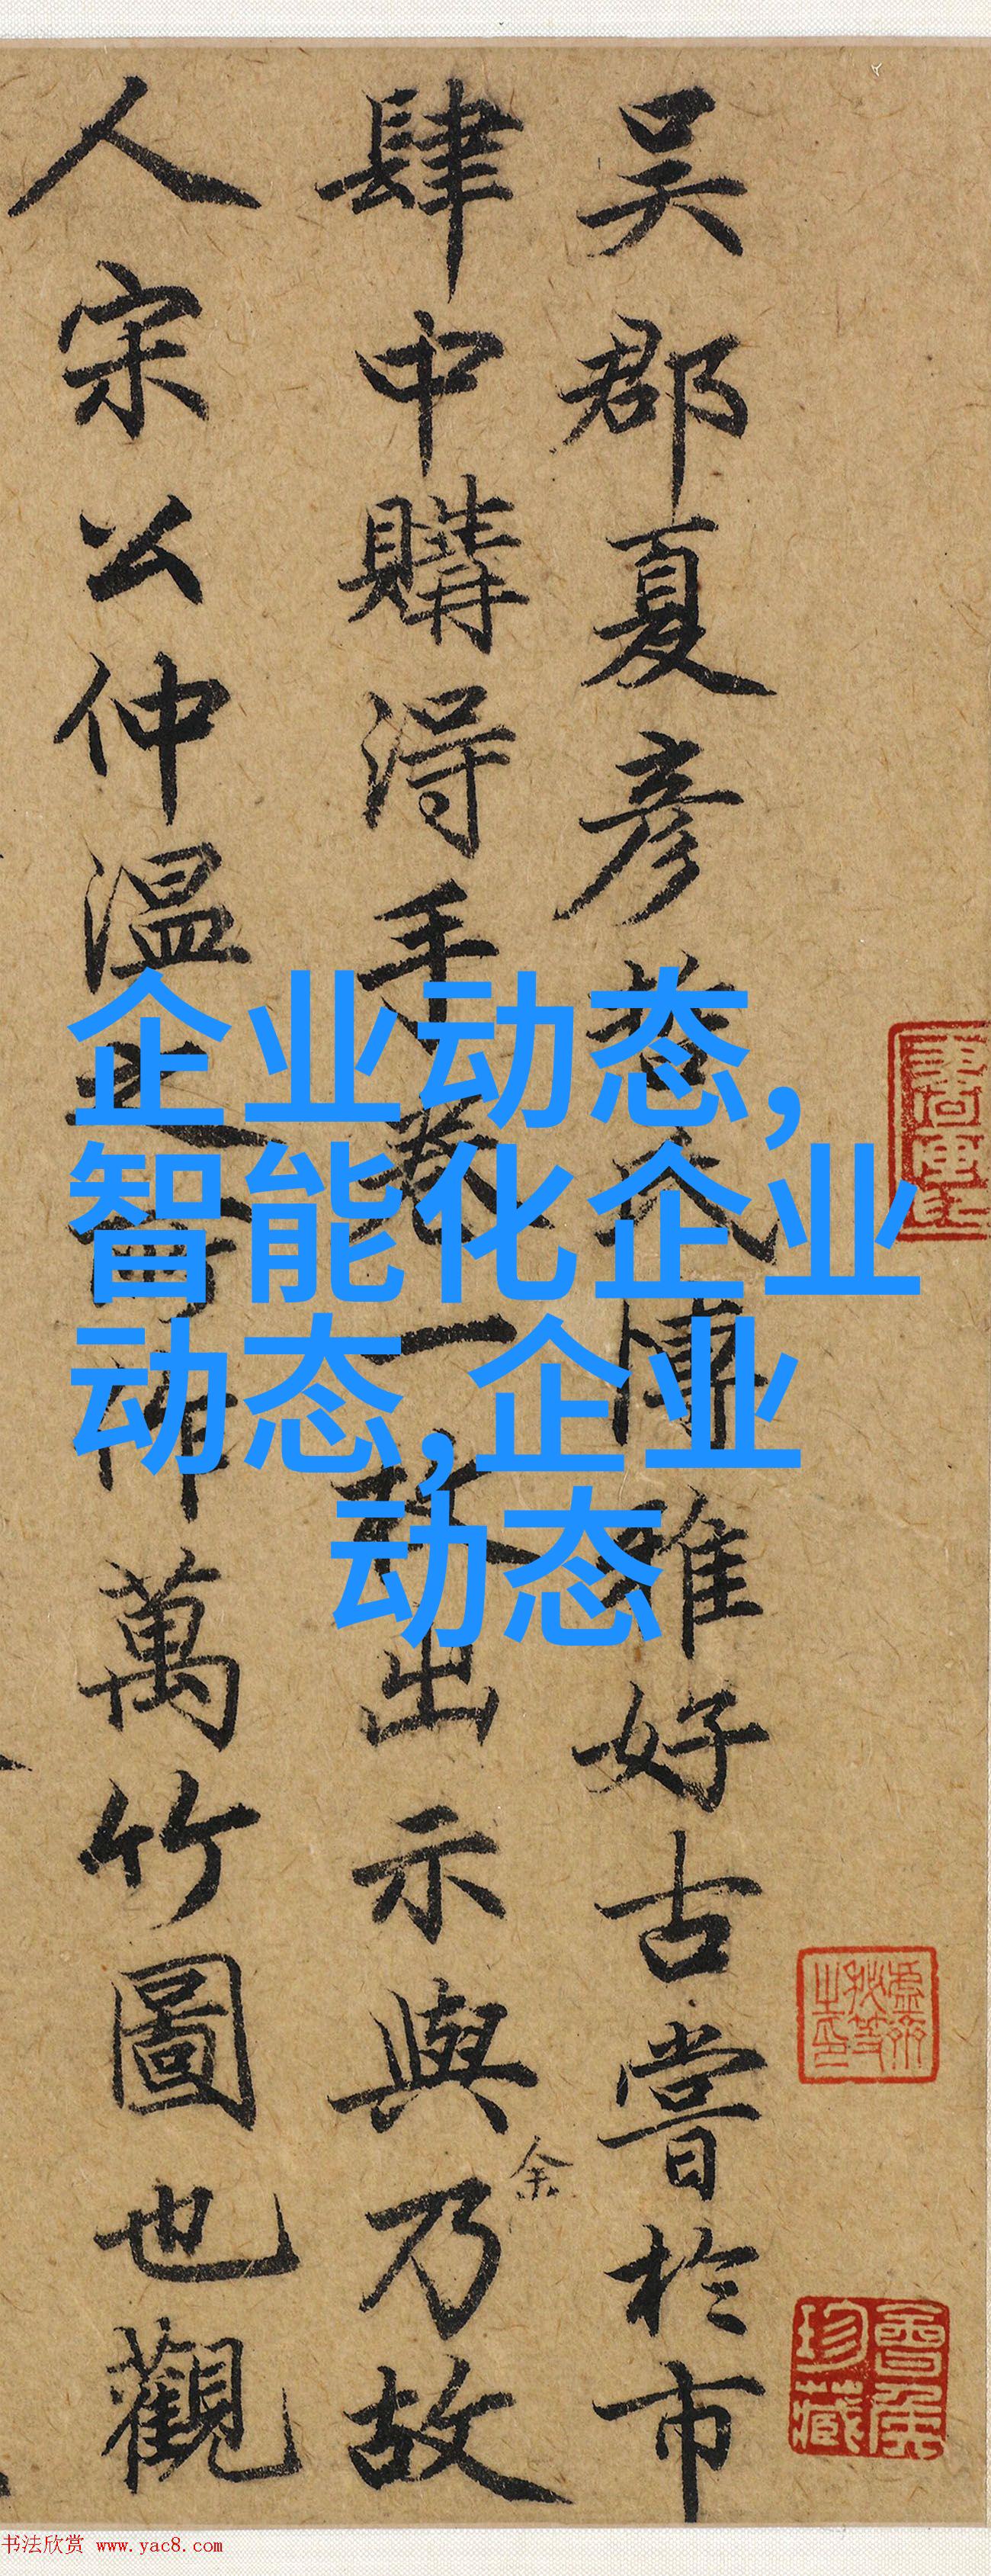 吴郡夏彦
博雅好古嘗於市
肆中購得手卷一
出示與乃故
余
人宋公仲温
萬竹圖也觀
企业动态,
智能化企业
动态,企业
动态
珍藏
书法欣赏 www.yac8.com